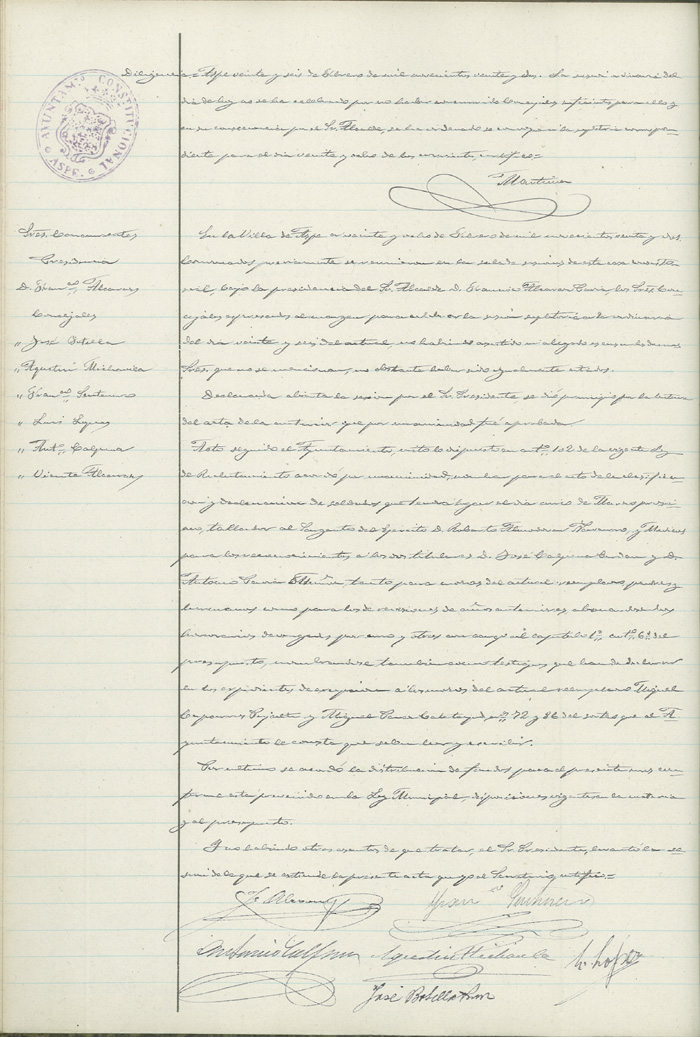 AYUNTAM.º CONSTITUCIONAL
DE
ASPE.
Diligencia = Aspe veinte y seis de Febrero de mil novecientos veinte y dos. La sesión ordinaria del
día de hoy no se ha celebrado por no haber número de Concejales suficiente para ello y
en su consecuencia por el Sr. Alcalde se ha ordenado se convoque a la supletoria correspon-
diente para el día veinte y ocho de los corrientes, certifico=
Martinez
Sres. Concurrentes
Presidencia
D. Franco. Alcaraz
Concejales
" José Botella
" Agustín Michavila
" Franco.
" Luis
" Anto. Calpena
" Vicente Alcaraz
En la Villa de Aspe a veinte y ocho de Febrero de mil novecientos veinte y dos.
Convocados previamente se reunieron en la sala de sesiones de esta casa Consisto-
rial, bajo la presidencia del Sr. Alcalde D. Francisco Alcaraz los Sres. Con-
cejales expresados al margen para celebrar la sesión supletoria a la ordinaria
del día veinte y seis del actual, no habiendo asistido ni alegado excusa los demás
Sres. que no se mencionan, no obstante haber sido igualmente citados.
Declarada abierta la sesión por el Sr. Presidente se dió principio por la lectura
del acta de la anterior que por unanimidad fué aprobada.
Acto seguido el Ayuntamiento, visto lo dispuesto en el artº. 102 de la vigente Ley
de Reclutamiento acordó por unanimidad, nombrar para el acto de la clasifica-
ción y declaración de soldados que tendrá lugar el día cinco de Marzo próxi-
mo, tallador al Sargento del Ejército D. Roberto Navarro, y Médicos
para los reconocimientos a los dos titulares D. José Calpena y D.
Antonio García tanto para mozos del actual reemplazo, padres y
hermanos como para los de revisiones de años anteriores abonándoseles los
honorarios de por uno y otros con cargo al capítulo 1º. artº. 6º. del
presupuesto, nombrándose también como testigos que han de declarar
en los expedientes de excepción a los mozos del actual reemplazo Miguel
Caparros Pujalte y Miguel nºs. 72 y 86 del sorteo que el A-
yuntamiento le consta que saben leer y escribir.
Por último se acordó la distribución de fondos para el presente mes con-
forme está prevenido en la Ley Municipal, disposiciones vigentes en la materia
y al presupuesto.
Y no habiendo otros asuntos de que tratar, el Sr. Presidente, levantó la se-
sión de la que se extiende la presente acta que yo el Secretario certifico=
Fº Alcaraz
Antonio Calpena Agustín Michavila
José Botella